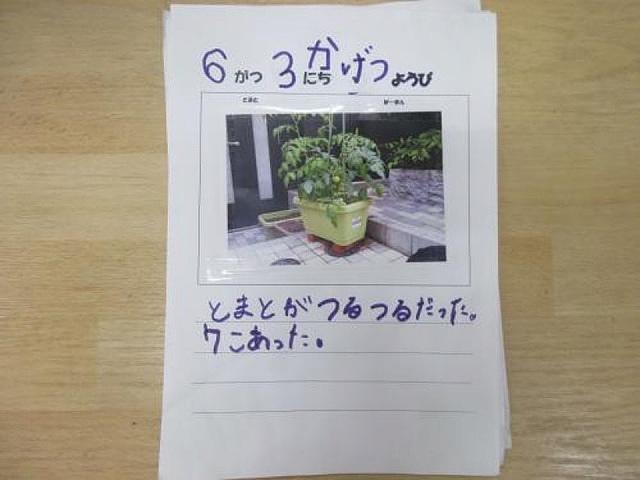 6 がつ 3 にち か げつ ようび
とまと ぴーまん
とまとがつるつるだった。
7こあった。